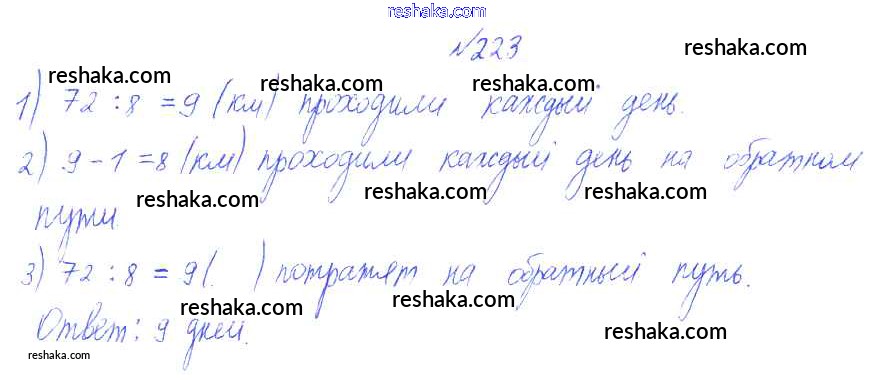 reshaka.com
№223
reshaka.com
reshaka.com reshaka.com reshaka.com
1) 72 : 8 = 9 (км) проходили каждый день.
2) 9 - 1 = 8 (км) проходили каждый день на обратном
reshaka.com reshaka.com reshaka.com
пути.
3) 72 : 8 = 9 ( ) потратят на обратный путь.
reshaka.com reshaka.com reshaka.com
Ответ: 9 дней.
reshaka.com